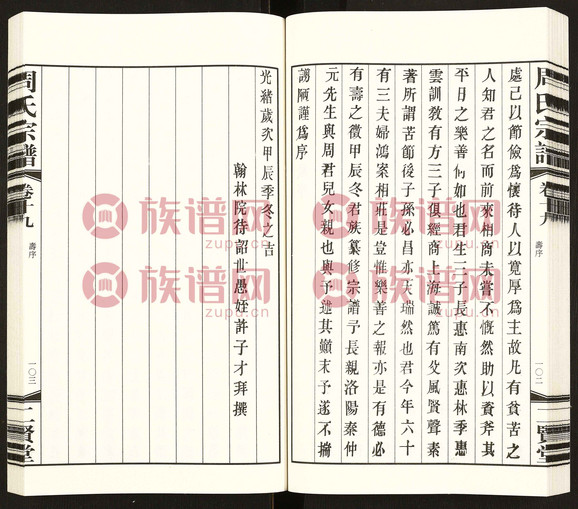 處己以節儉爲懷待人以寬厚爲主故凡有貧苦之
人知君之名而前來相商未嘗不慨然助以資斧其
平日之樂善何如也君生三子長惠南次惠林季惠
雲訓教有方三子俱經商上海誠篤有父風賢聲素
著所謂苦節後子孫必昌亦天瑞然也君今年六十
有三夫婦鴻案相莊是豈惟樂善之報亦是有德必
有壽之徵甲辰冬君族纂修宗譜予長親洛陽秦仲
元先生與周君兒女親也與予述其顚末予遂不揣
謭陋謹爲序
周氏宗譜
卷十九
壽序
一〇二
二賢堂
光緒歲次甲辰季冬之吉
翰林院待詔世愚姪許子才拜撰
周氏宗譜
卷十九
壽序
一〇三
二賢堂
族谱网
zupu.cn
族谱网
zupu.cn
族谱网
zupu.cn
族谱网
zupu.cn